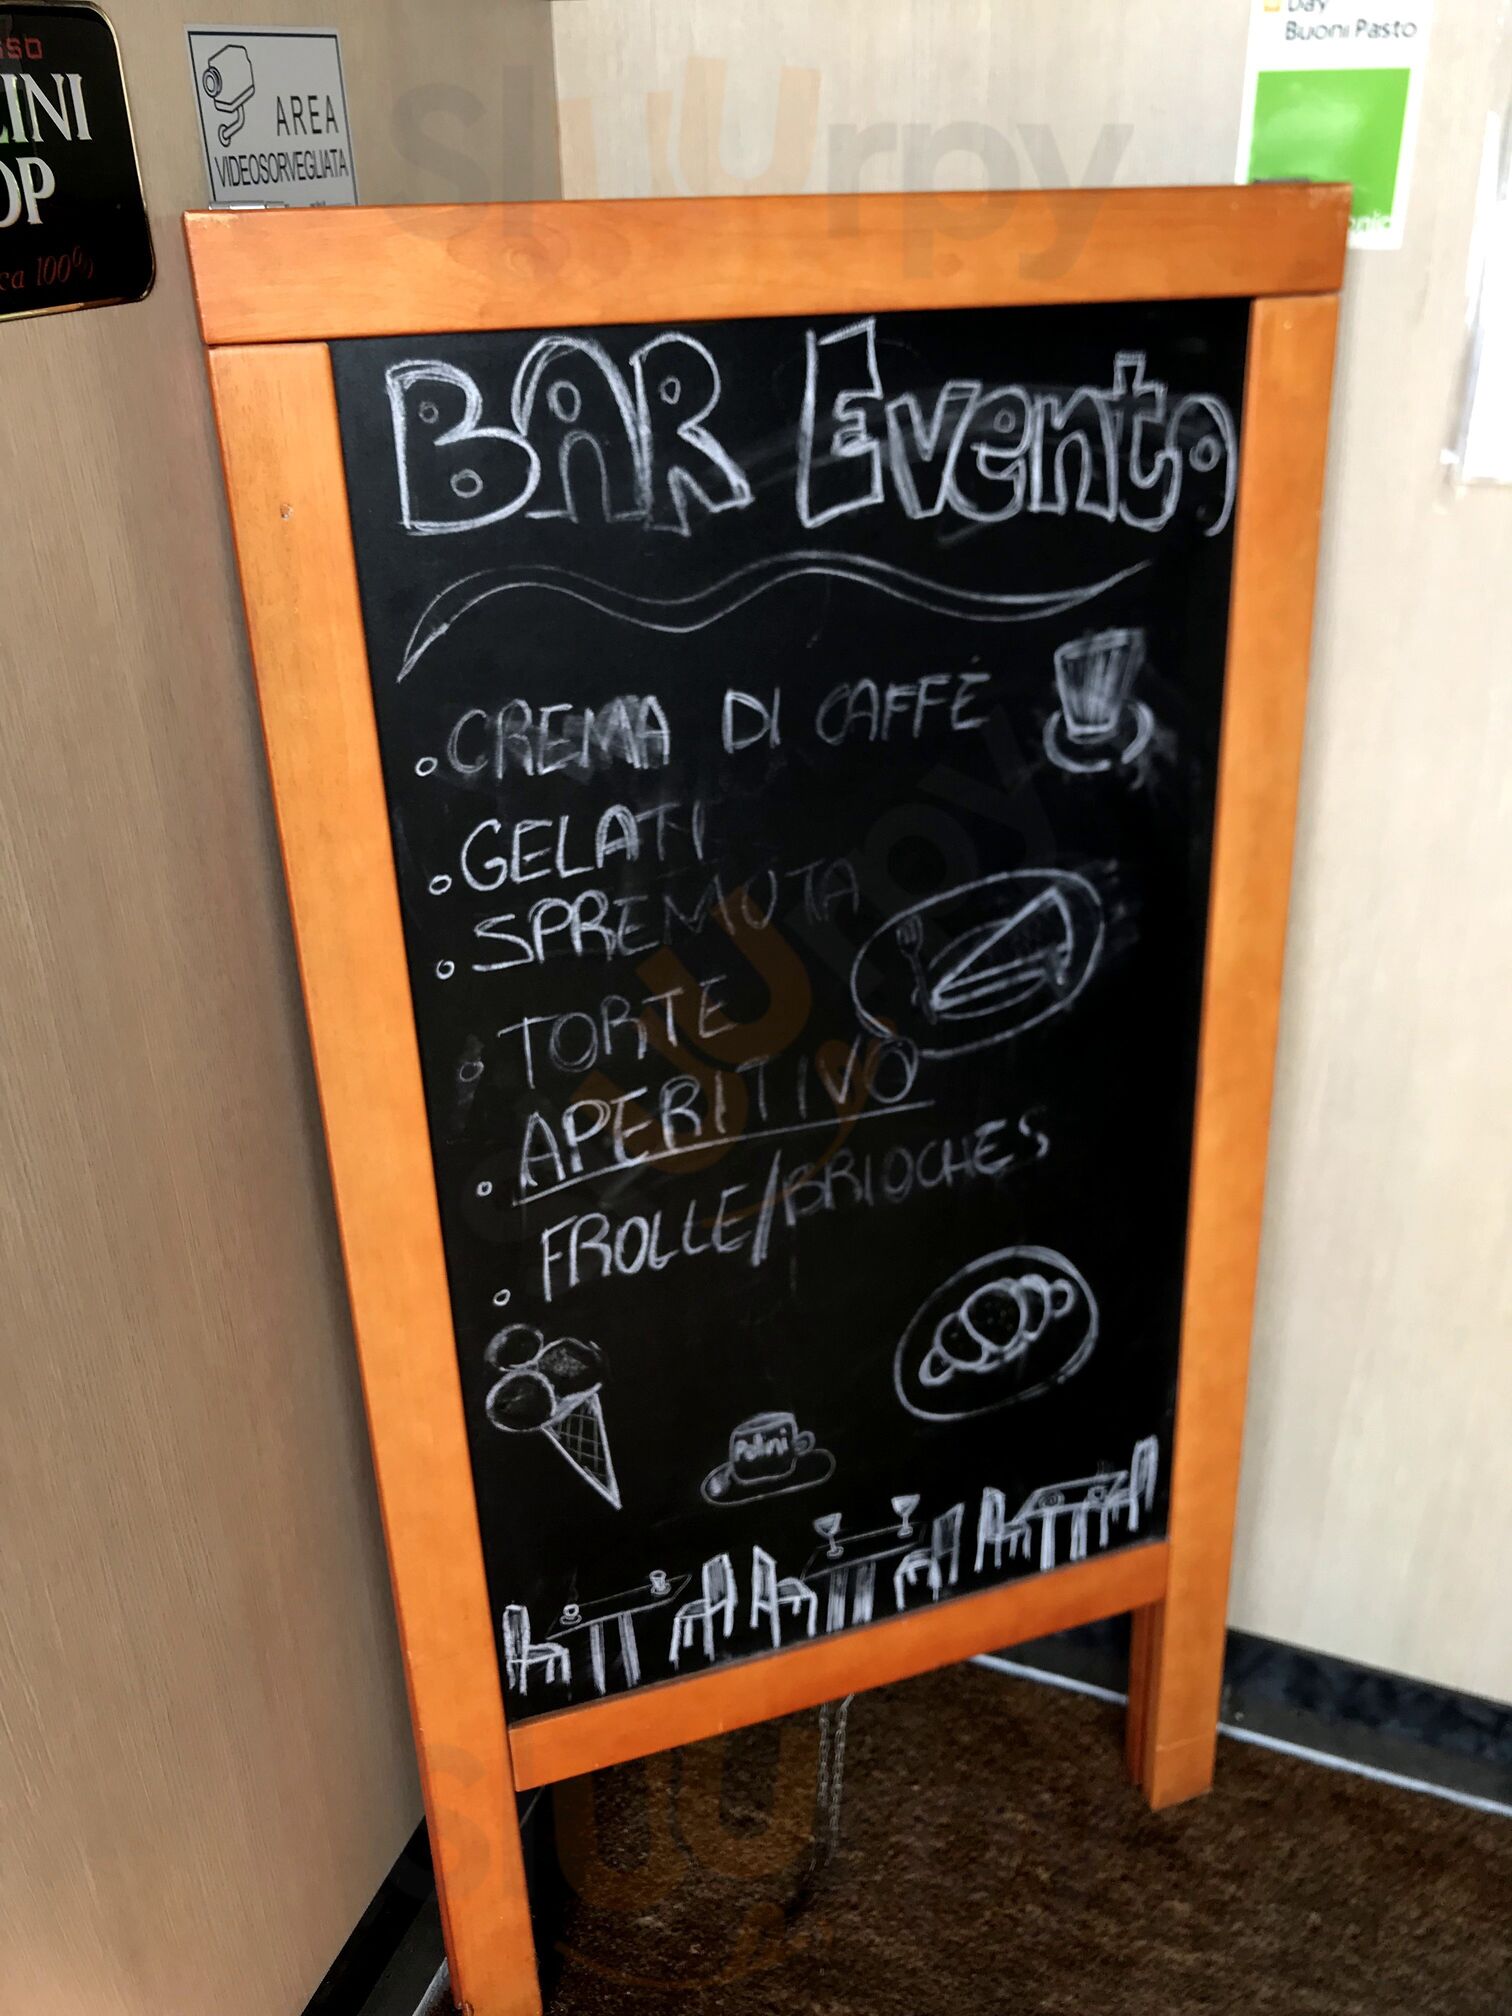 SSO
INI
OP
ca 100%
AREA
VIDEOSORVEGLIATA
Day
Buoni Pasto
slurpy
BAR Evento
CREMA DI CAFFÈ
GELATI
SPREMUTA
TORTE
APERITIVO
FROLLE/BRIOCHES
Pellini
slurpy
slurpy